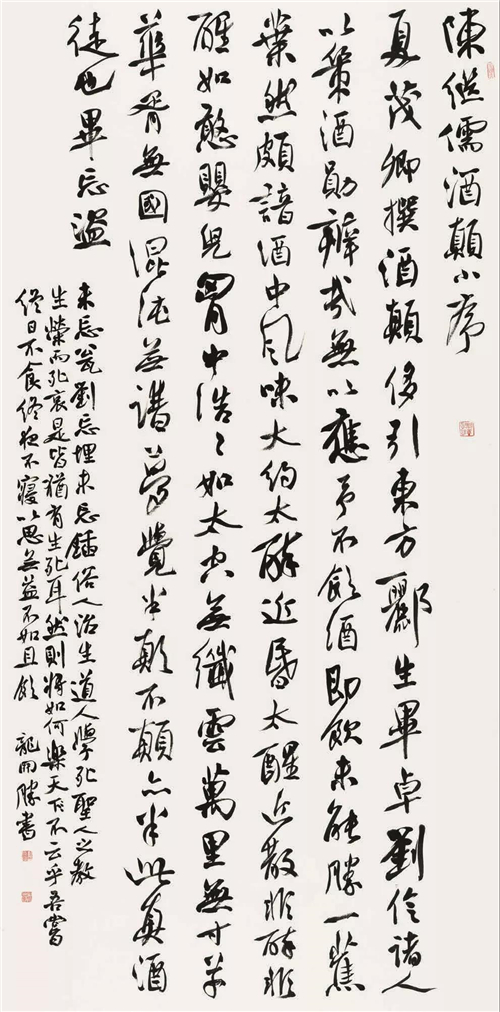 陳繼儒酒顛小序
夏茂卿撰酒顛侈引東方酈生畢卓劉伶諸人
以策酒勛辯哉無以應予不飲酒即飲未能勝一蕉
葉然頗諳酒中風味大約太醉近昏太醒近散非醉非
醒如憨嬰兒胸中浩浩如太空無纖雲萬里無寸草
華胥無國混沌無譜夢覺半顛不顛亦半此真酒
徒也畢忘盜
未忘甕劉忘埋未忘鍤俗人治生道人學死聖人之教
生榮而死哀是皆猶有生死耳然則將如何樂天不云乎吾嘗
終日不食終夜不寢以思無益不如且飲 龍開勝書